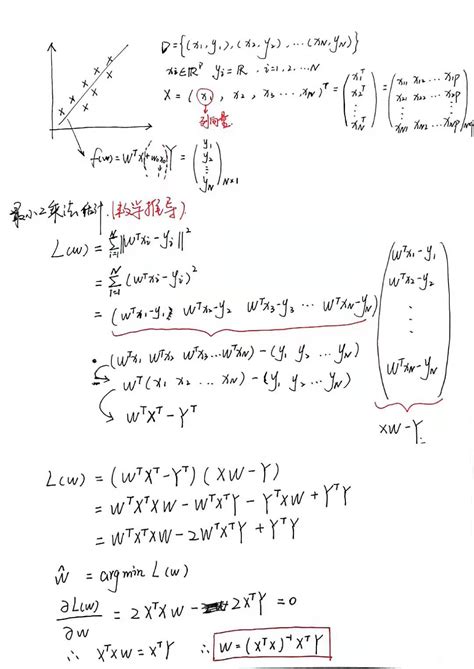 D = {(x₁, y₁), (x₂, y₂), ⋯ (x_N, y_N)}
xᵢ ∈ ℝᵖ yᵢ = ℝ, i = 1, 2, ⋯ N
X = (x₁, x₂, x₃ ⋯ x_N)ᵀ = (x₁ᵀ x₂ᵀ ⋮ x_Nᵀ) = (x₁₁ x₁₂ ⋯ x₁p x₂₁ x₂₂ ⋯ x₂p ⋮ x_N1 x_N2 ⋯ x_Np)
列向量
f(w) = wᵀx(+w₀x₀)
Y = (y₁ y₂ ⋮ y_N)N×1
最小2乘法估计 (数学推导)
L(w) = Σᵢ₌₁ᴺ ‖wᵀxᵢ - yᵢ‖²
= Σᵢ₌₁ᴺ (wᵀxᵢ - yᵢ)²
= (wᵀx₁-y₁ wᵀx₂-y₂ wᵀx₃-y₃ ⋯ wᵀx_N-y_N) (wᵀx₁-y₁ wᵀx₂-y₂ ⋮ wᵀx_N-y_N)
(wᵀx₁ wᵀx₂ wᵀx₃ ⋯ wᵀx_N) - (y₁ y₂ ⋯ y_N)
wᵀ(x₁ x₂ ⋯ x_N) - (y₁ y₂ ⋯ y_N)
wᵀXᵀ - Yᵀ
XW - Y
L(w) = (wᵀXᵀ - Yᵀ)(XW - Y)
= wᵀXᵀXW - wᵀXᵀY - YᵀXW + YᵀY
= wᵀXᵀXW - 2wᵀXᵀY + YᵀY
ŵ = argmin L(w)
∂L(w)/∂w = 2XᵀXW - 2XᵀY = 0
∴ XᵀXW = XᵀY ∴ W = (XᵀX)⁻¹XᵀY